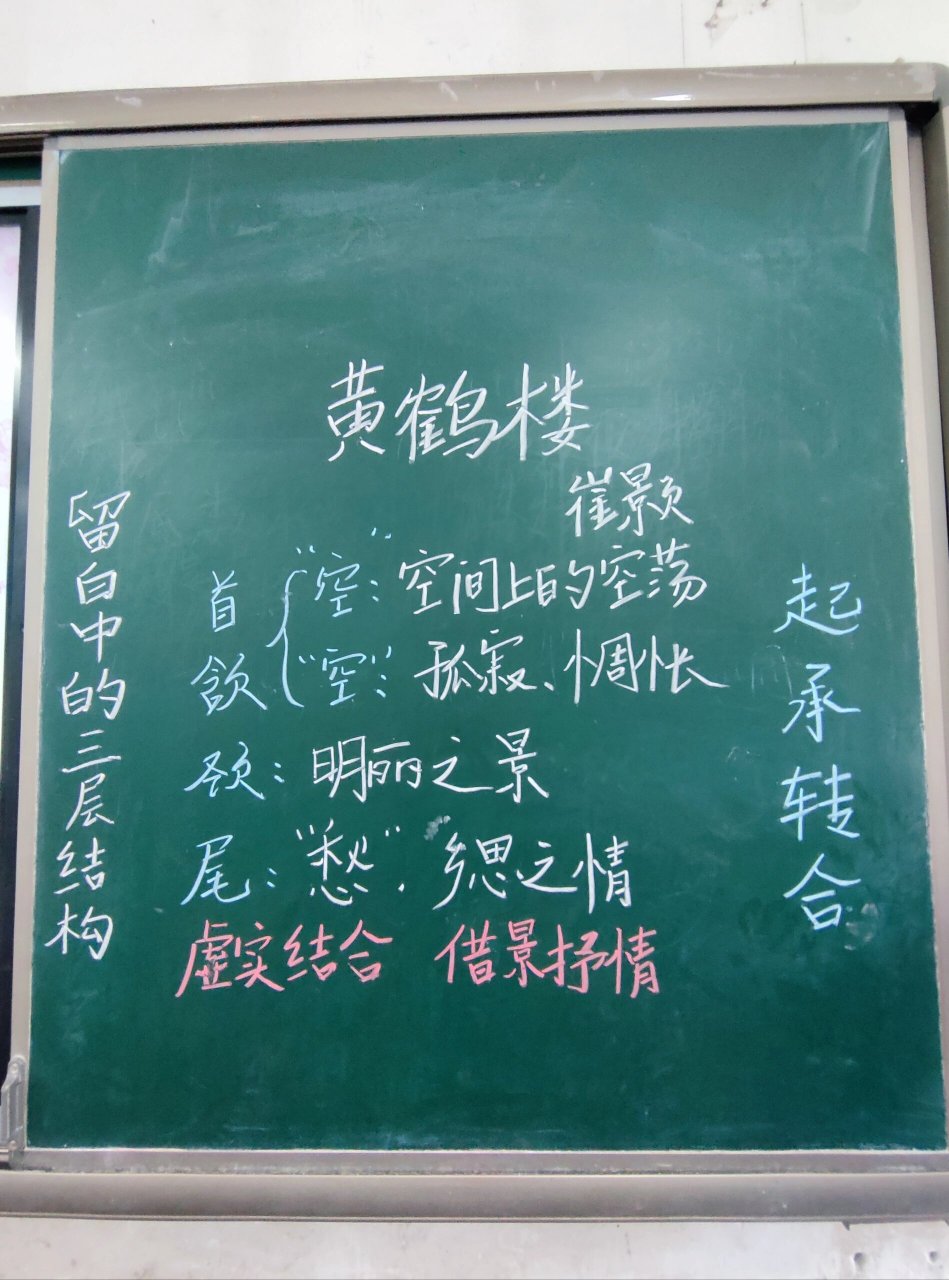 黄鹤楼
崔颢
留白中的三层结构
首颔
“空”：空间上的空荡
“空”：孤寂、惆怅
颈：明丽之景
尾：“愁”．乡思之情
虚实结合 借景抒情
起承转合